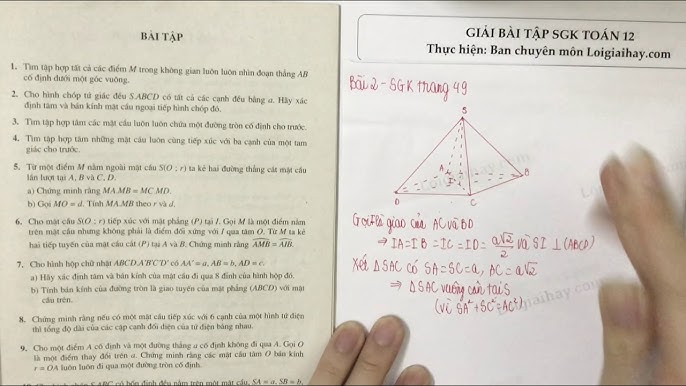 BÀI TẬP
1. Tìm tập hợp tất cả các điểm M trong không gian luôn luôn nhìn đoạn thẳng AB
cố định dưới một góc vuông.
2. Cho hình chóp tứ giác đều S.ABCD có tất cả các cạnh đều bằng a. Hãy xác
định tâm và bán kính mặt cầu ngoại tiếp hình chóp đó.
3. Tìm tập hợp tâm các mặt cầu luôn luôn chứa một đường tròn cố định cho trước.
4. Tìm tập hợp tâm những mặt cầu luôn cùng tiếp xúc với ba cạnh của một tam
giác cho trước.
5. Từ một điểm M nằm ngoài mặt cầu S(O ; r) ta kẻ hai đường thẳng cắt mặt cầu
lần lượt tại A, B và C, D.
a) Chứng minh rằng MA.MB = MC.MD.
b) Gọi MO = d. Tính MA.MB theo r và d.
6. Cho mặt cầu S(O ; r) tiếp xúc với mặt phẳng (P) tại I. Gọi M là một điểm nằm
trên mặt cầu nhưng không phải là điểm đối xứng với I qua tâm O. Từ M ta kẻ
hai tiếp tuyến của mặt cầu cắt (P) tại A và B. Chứng minh rằng AMB = AIB.
7. Cho hình hộp chữ nhật ABCD.A'B'C'D' có AA' = a, AB = b, AD = c.
a) Hãy xác định tâm và bán kính của mặt cầu đi qua 8 đỉnh của hình hộp đó.
b) Tính bán kính của đường tròn là giao tuyến của mặt phẳng (ABCD) với mặt
cầu trên.
8. Chứng minh rằng nếu có một mặt cầu tiếp xúc với 6 cạnh của một hình tứ diện
thì tổng độ dài của các cặp cạnh đối diện của tứ diện bằng nhau.
9. Cho một điểm A cố định và một đường thẳng a cố định không đi qua A. Gọi O
là một điểm thay đổi trên a. Chứng minh rằng các mặt cầu tâm O bán kính
r = OA luôn luôn đi qua một đường tròn cố định.
GIẢI BÀI TẬP SGK TOÁN 12
Thực hiện: Ban chuyên môn Loigiaihay.com
Bài 2 - SGK trang 49
S
A
B
I
D
C
Gọi I là giao của AC và BD
⇒ IA = IB = IC = ID = a√2/2 và SI ⊥ (ABCD)
Xét ΔSAC có SA = SC = a, AC = a√2
⇒ ΔSAC vuông cân tại S
(vì SA² + SC² = AC²)
Loigiaihay.com